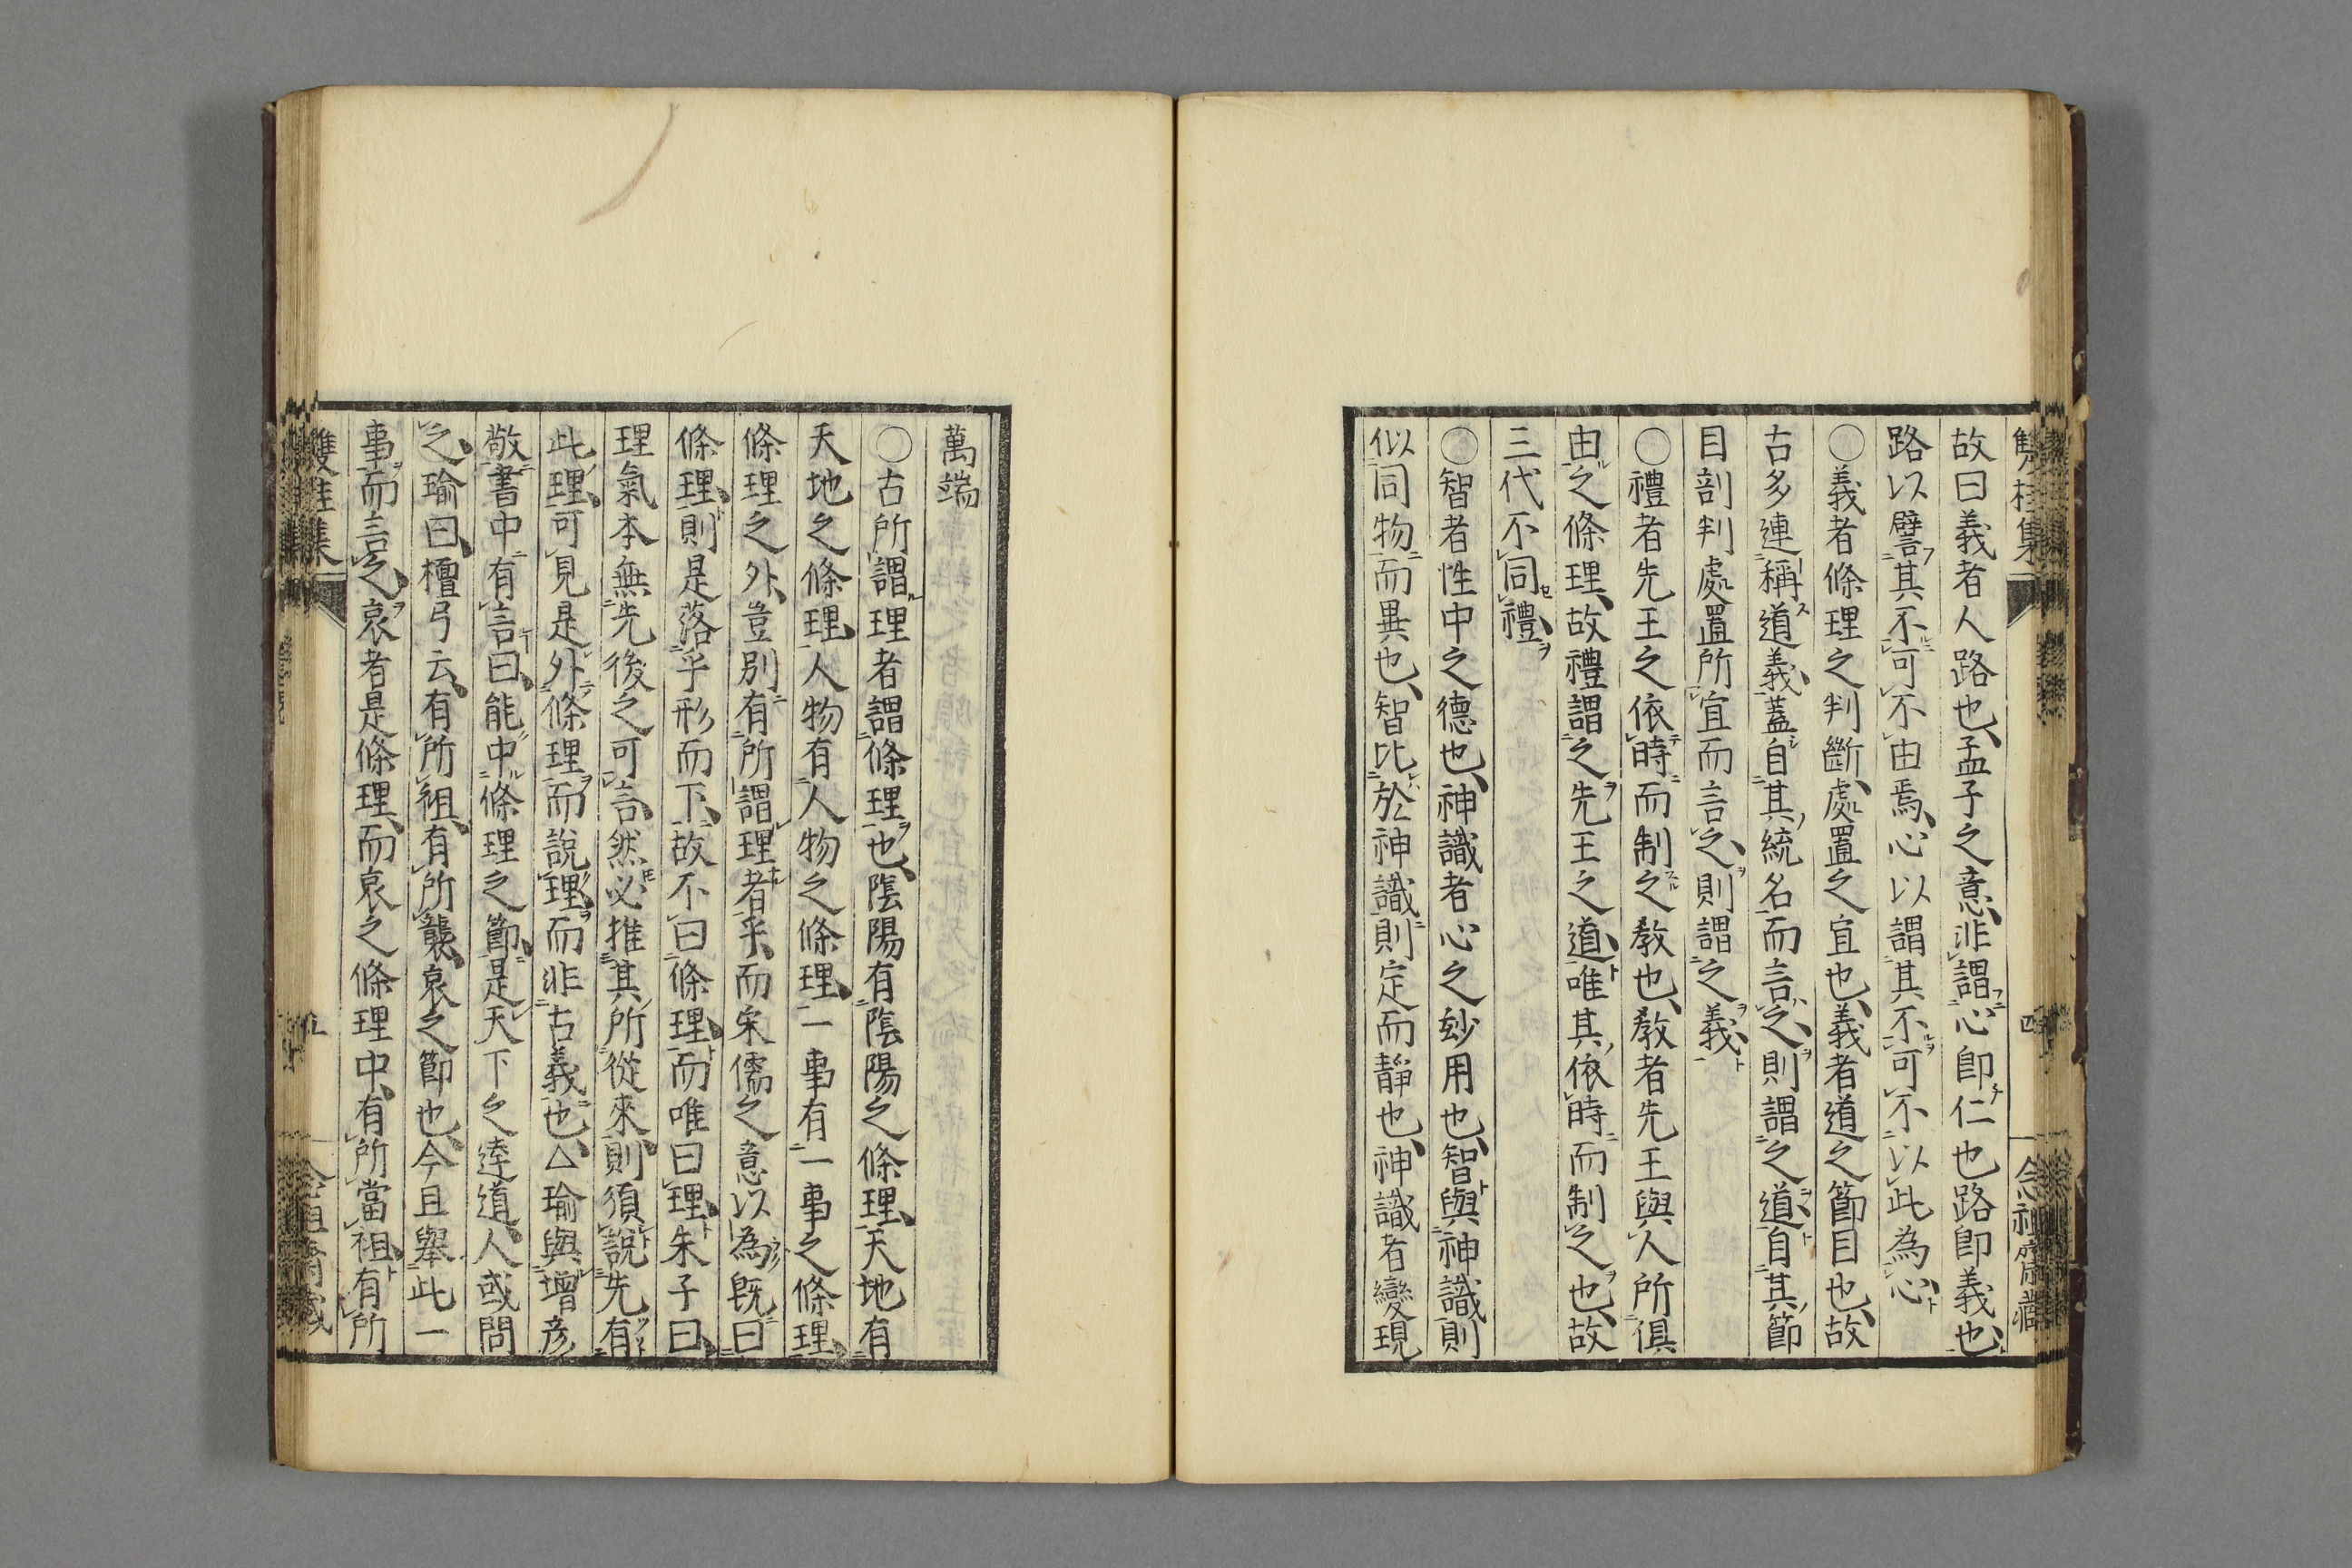 故曰義者人路也孟子之意非謂心卽仁也路卽義也
路以譬其不可不由焉心以謂其不可不以此為心
〇義者條理之判斷處置之宜也義者道之節目也故
古多連稱道義蓋自其統名而言之則謂之道自其節
目剖判處置所宜而言之則謂之義
〇禮者先王之依時而制之教也教者先王與人所俱
由之條理故禮謂之先王之道唯其依時而制之也故
三代不同禮
〇智者性中之德也神識者心之妙用也智與神識則
似同物而異也智比於神識則定而靜也神識者變現
萬端
〇古所謂理者謂條理也陰陽有陰陽之條理天地有
天地之條理人物有人物之條理一事有一事之條理
條理之外豈別有所謂理者乎而宋儒之意以為既曰
條理則是落乎形而下故不曰條理而唯曰理朱子曰
理氣本無先後之可言然必推其所從來則須說先有
此理可見是外條理而說理而非古義也△瑜與增彥
敬書中有言曰能中條理之節是天下之達道人或問
之瑜曰檀弓云有所祖有所襲哀之節也今且舉此一
事而言之哀者是條理而哀之條理中有所當祖有所
雙桂集
五